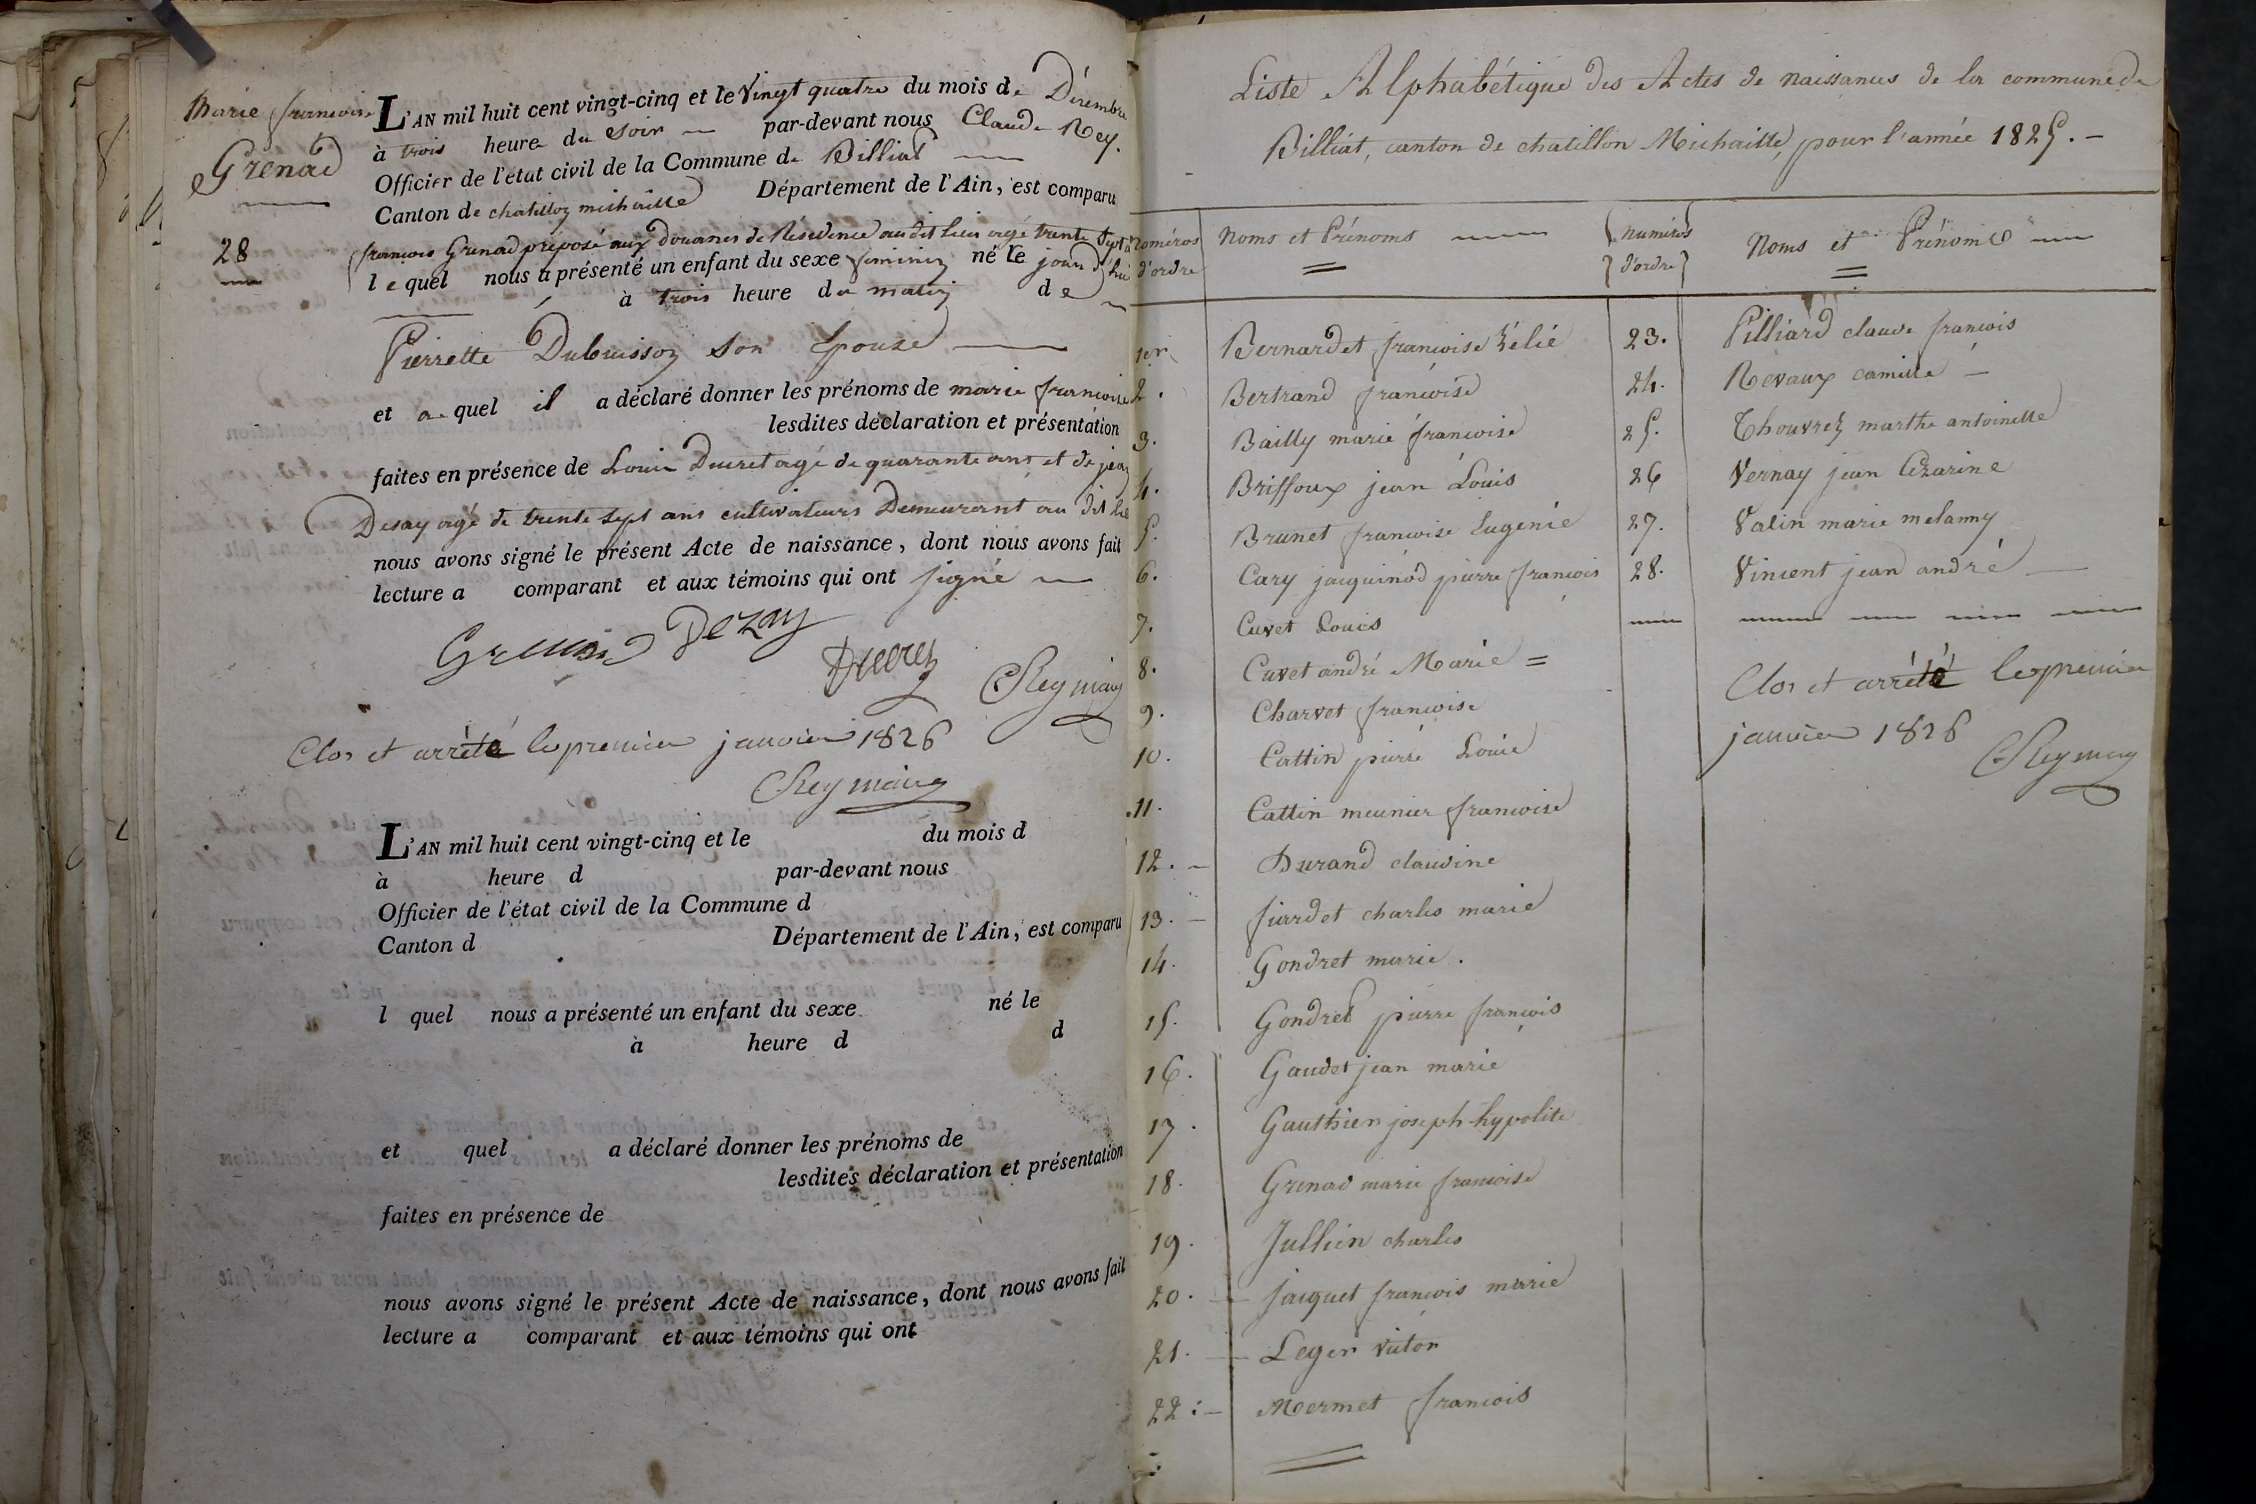 Marie françoise
Grenad
28
L'AN mil huit cent vingt-cinq et le Vingt quatre du mois de Décembre
à trois heure du soir par-devant nous Claude Rey.
Officier de l'état civil de la Commune de Billiat
Canton de chatillon michaille Département de l'Ain, est comparu
françois Grenad préposé aux douanes de Résidence audit lieu agé trente sept
l e quel nous a présenté un enfant du sexe feminin né le jour d'hui
à trois heure du matin de
Pierrette Dubuisson son Epouse
et au quel il a déclaré donner les prénoms de marie françoise
lesdites déclaration et présentation
faites en présence de Louis Ducret agé de quarante ans et de jean
Desay agé de trente sept ans cultivateurs Demeurant au dit lieu
nous avons signé le présent Acte de naissance, dont nous avons fait
lecture a comparant et aux témoins qui ont signé
Grenad Dezay
Ducret
CRey maire
Clos et arrêté le premier janvier 1826
CRey maire
L'AN mil huit cent vingt-cinq et le du mois d
à heure d par-devant nous
Officier de l'état civil de la Commune d
Canton d Département de l'Ain, est comparu
l quel nous a présenté un enfant du sexe né le
à heure d d
et quel a déclaré donner les prénoms de
lesdites déclaration et présentation
faites en présence de
nous avons signé le présent Acte de naissance, dont nous avons fait
lecture a comparant et aux témoins qui ont
Liste Alphabétique des Actes de naissances de la commune de
Billiat, canton de chatillon Michaille, pour l'année 1825.
Noméros d'ordre
Noms et Prénoms
1er Bernardet françoise Zélié
2. Bertrand françoise
3. Bailly marie françoise
4. Briffoux jean Louis
5. Brunet françoise Eugenie
6. Cary jacquinod pierre françois
7. Cuvet Louis
8. Cuvet andré Marie =
9. Charvet françoise
10. Cattin pierre Louis
11. Cattin meunier françoise
12. Durand claudine
13. fierdet charles marie
14. Gondret marie.
15. Gondret pierre françois
16. Gaudet jean marie
17. Gauthier joseph hypolite
18. Grenad marie françoise
19. Jullien charles
20. jacquet françois marie
21. Leger victor
22. Mermet françois
numéros d'ordre
Noms et Prénoms
23. Pilliard claude françois
24. Revaux camille
25. Thouvrez marthe antoinette
26 Vernay jean Cézarine
27. Valin marie melanny
28. Vincent jean andré
Clos et arrêté le premier
janvier 1826
CRey maire